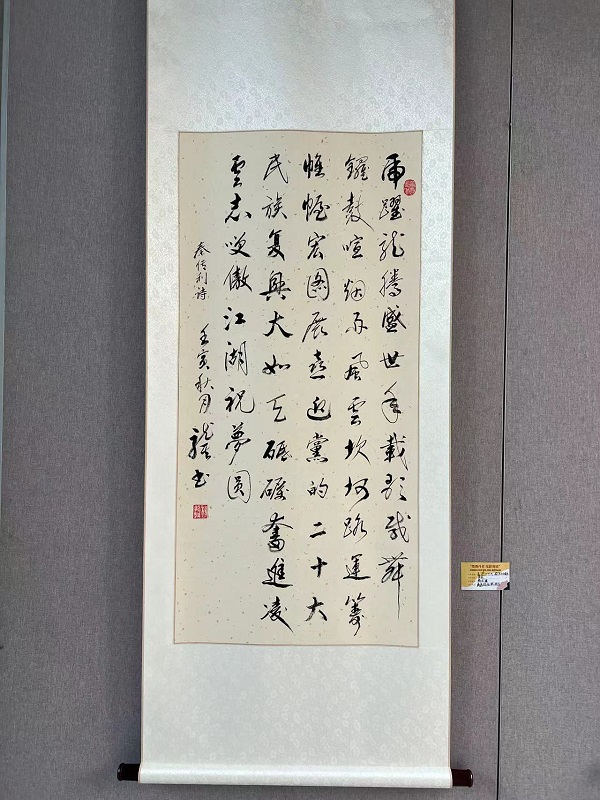 虎躍龍騰盛世年載歌載舞
鑼鼓喧烟雨風雲坎坷路運籌
帷幄宏圖展喜迎黨的二十大
民族复興大如天砥礪奮進凌
雲志笑傲江湖祝夢圓
秦传利诗 壬寅秋月 书